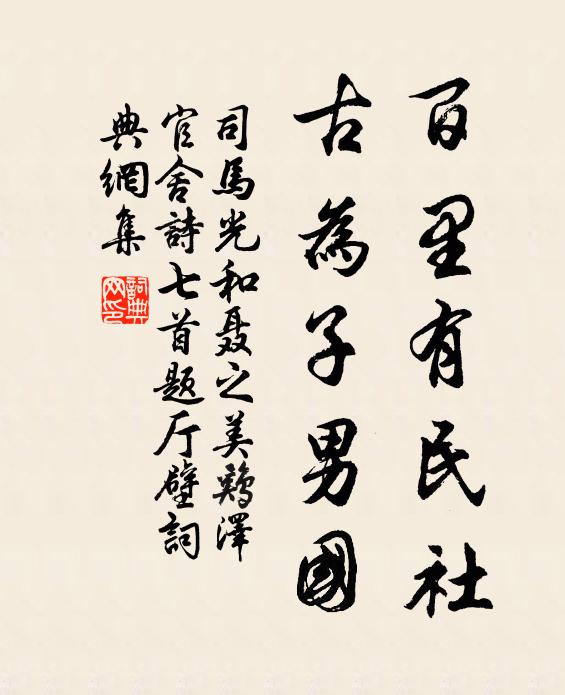 百里有民社
古為子男國
司馬光和聂之美鷄澤
官舍詩七首题厅壁詞
典網集
詞典
网印